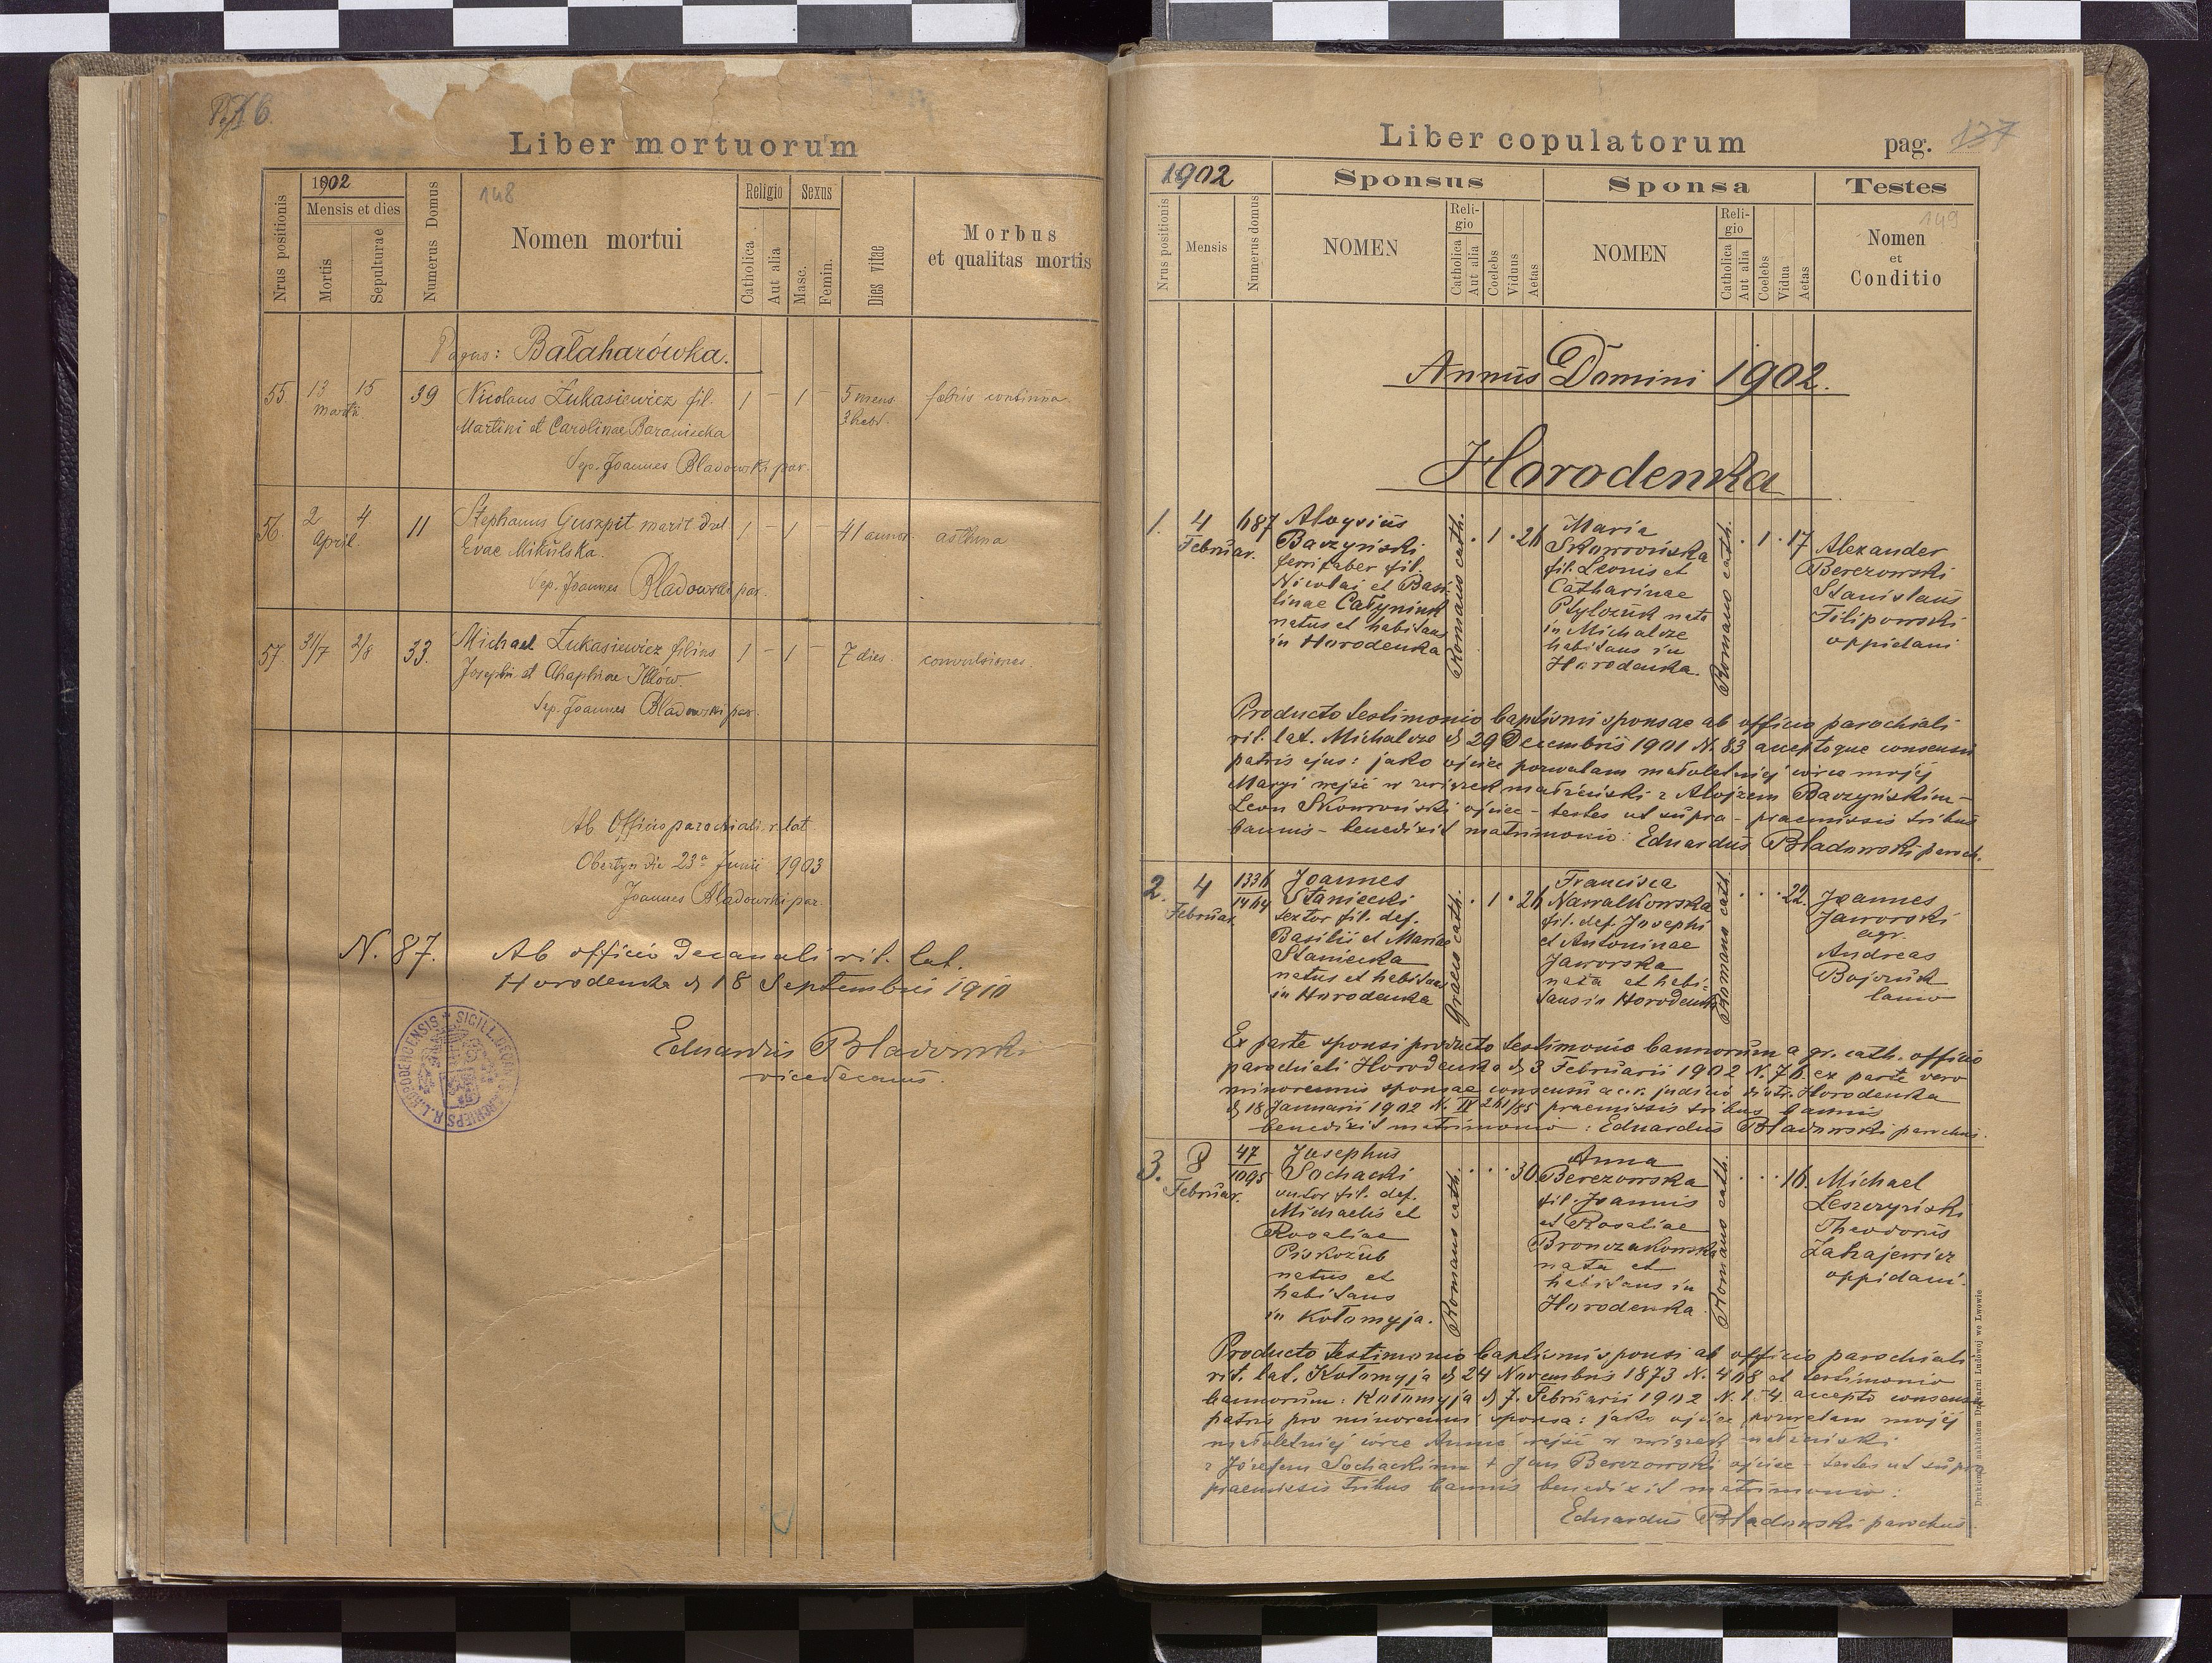 Pag 76
Liber mortuorum
1902
148
Nrus positionis
Mensis et dies
Mortis
Sepulturae
Numerus Domus
Nomen mortui
Religio
Catholica
Aut alia
Sexus
Masc.
Femin.
Dies vitae
Morbus
et qualitas mortis
Pagus: Bałaharówka.
55. 13 15 39 Nicolaus Łukasiewicz fil. 1 – 1 – 5 mens. febris continua
Martii 3 hebd.
Martini et Carolinae Baraniecka
Sep. Joannes Bladowski par.
56. 2 4 11 Stephanus Guszpit marit 1 – 1 – 41 annor. asthma
April. Evae Mikulska.
Sep. Joannes Bladowski par.
57 31/7 2/8 33. Michael Łukasiewicz filius 1 – 1 – 7 dies. convulsiones.
Josephi et Ahaphiae
Sep. Joannes Bladowski par.
Ab Officio parochiali r. lat.
Obertyn die 23ª Junii 1903
Joannes Bladowski par.
N. 87. Ab officio Decanali rit. lat.
Horodenka d 18 Septembris 1910
Eduardus Bladowski
vicedecanus.
Liber copulatorum
pag. 137
1902
Sponsus
Sponsa
Testes
149
Nrus positionis
Mensis
Numerus domus
NOMEN
Religio
Catholica
Aut alia
Coelebs
Viduus
Aetas
NOMEN
Religio
Catholica
Aut alia
Coelebs
Vidua
Aetas
Nomen
et
Conditio
Annus Domini 1902.
Horodenka
1. 4 Februar. 687
Aloysius
Baczyński
ferrifaber fil.
Nicolai et Basi-
linae Całyniuk
natus et habitans
in Horodenka
Romano cath.
1 26
Maria
Skowrońska
fil. Leonis et
Catharinae
nata
in Michalcze
habitans in
Horodenka.
Romano cath.
1 17
Alexander
Berezowski
Stanislaus
Filipowski
oppidani
Producto testimonio baptismi sponsae ab officio parochiali
rit. lat. Michalcze d 29 Decembris 1901 N. 83 acceptoque consensu
patris ejus: jako ojciec pozwalam małoletniej córce mojej
Maryi wejść w związek małżeński z Alojzem Baczyńskim –
Leon Skowroński ojciec – testes ut supra – praemissis tribus
bannis – benedixit matrimonio: Eduardus Bladowski paroch.
2. 4 Februar. 1336
1464
Joannes
Staniecki
sextor fil. def.
Basilii et Mariae
Staniecka
natus et habitans
in Horodenka
Graeco cath.
1 26
Francisca
Nawalkowska
fil. def. Josephi
et Antoninae
Jaworska
nata et habi-
tans in Horodenka
Romano cath.
22.
Joannes
Jaworski
agr.
Andreas
Bojczuk
lanio
Ex parte sponsi producto testimonio bannorum a gr. cath. officio
parochiali Horodenka d 3 Februarii 1902 N. 76. ex parte vero
minorennis sponsae consensu a c. r. judicio distr. Horodenka
d 18 Januarii 1902 N. IV 261/85 praemissis tribus bannis
benedixit matrimonio: Eduardus Bladowski parochus.
3. 8 Februar. 47
1095
Josephus
Sochacki
sutor fil. def.
Michaelis et
Rosaliae
Piskozub
natus et
habitans
in Kołomyja.
Romano cath.
30
Anna
Berezowska
fil. Joannis
et Rosaliae
Bronczakowska
nata et
habitans in
Horodenka
Romano cath.
16
Michael
Leszczyński
Theodorus
Zahajewicz
oppidani.
Producto testimonio baptismi sponsi ab officio parochiali
rit. lat. Kołomyja d 24 Novembris 1873 N. 408 et testimonio
bannorum: Kołomyja d 7. Februarii 1902 N. 1.4. accepto consensu
patris pro minorenni sponsa: jako ojciec pozwalam mojej
małoletniej córce Annie wejść w związek małżeński
z Józefem Sochackim + Jan Berezowski ojciec – testes ut supra
praemissis tribus bannis benedixit matrimonio:
Eduardus Bladowski parochus.
nakładem Drukarni Ludowej we Lwowie